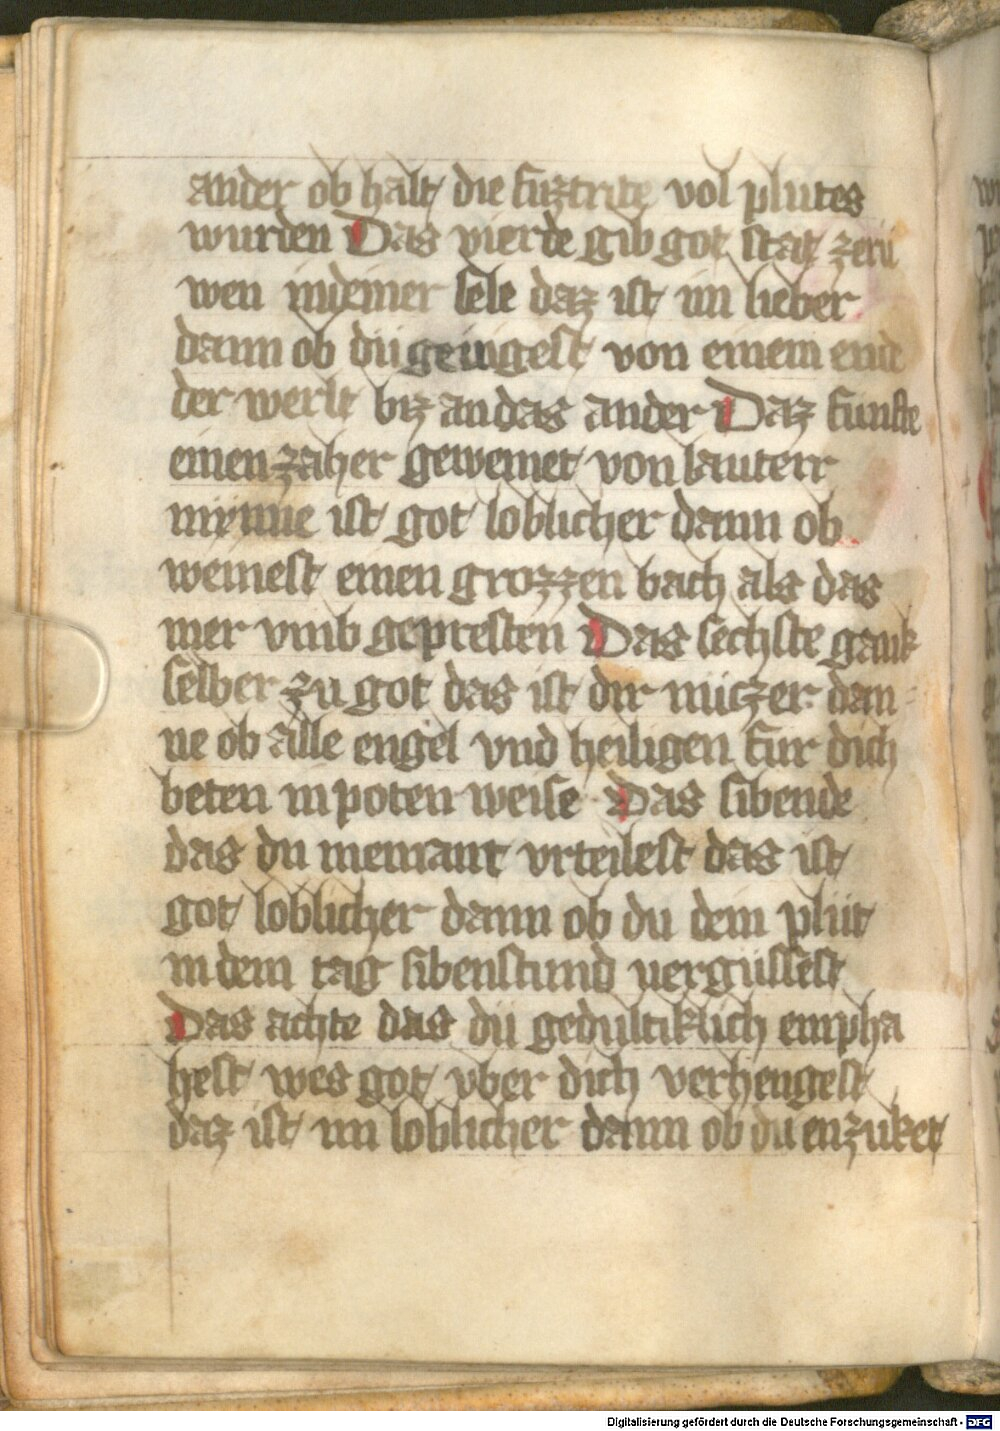 ander ob halt die fuztrite vol plutes
wurden Das vierde gib got stat zerů
wen indeiner sele daz ist im lieber
dann ob dů geingest von einem end
der werlt biz an das ander Daz funfte
einen zaher geweinet von lauterr
mynne ist got loblicher dann ob
weinest einen grozzen bach als das
mer vmb gepresten Das sechste gank
selber zu got das ist dir nuczer dan
ne ob alle engel vnd heiligen fur dich
beten in poten weise Das sibende
das du niemant vrteilest das ist
got loblicher dann ob du dein plüt
in dem tag sibenstund vergussest
Das achte das du gedultiklich empha
hest wes got vber dich verhengest
daz ist im loblicher dann ob du enzuket
Digitalisierung gefördert durch die Deutsche Forschungsgemeinschaft - DFG